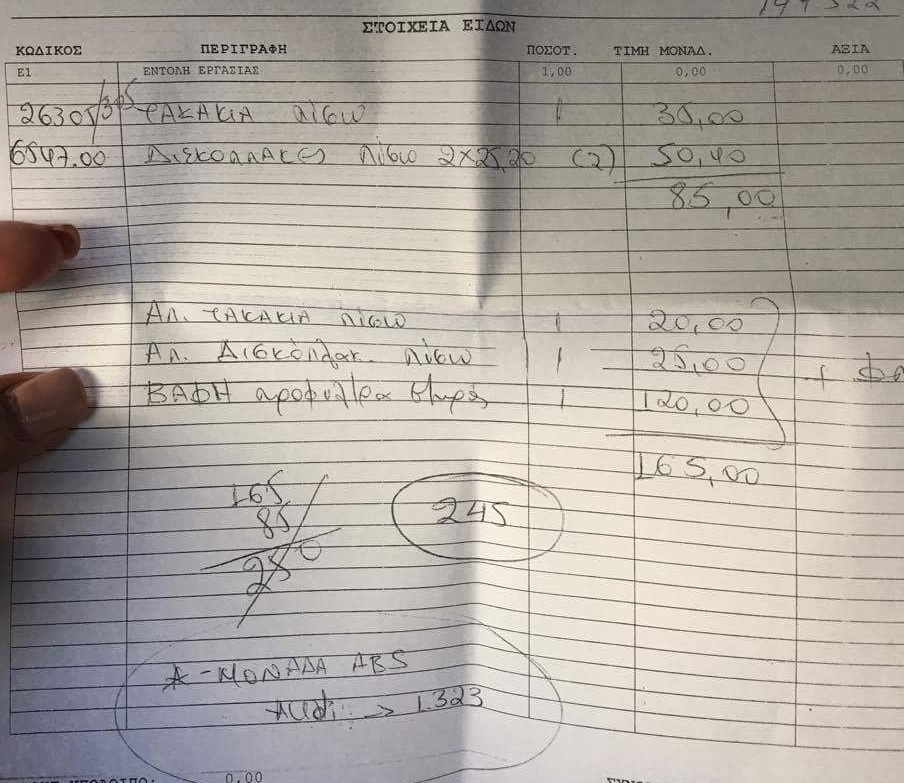 ΣΤΟΙΧΕΙΑ ΕΙΔΩΝ
ΚΩΔΙΚΟΣ ΠΕΡΙΓΡΑΦΗ ΠΟΣΟΤ. ΤΙΜΗ ΜΟΝΑΔ. ΑΞΙΑ
Ε1 ΕΝΤΟΛΗ ΕΡΓΑΣΙΑΣ 1,00 0,00 0,00
ΤΑΚΑΚΙΑ πίσω 1 35,00
6547.00 Δισκόπλακες πίσω 2×25,20 (2) 50,40
85,00
Αλ. ΤΑΚΑΚΙΑ πίσω 1 20,00
Αλ. Δισκόπλακ. πίσω 1 25,00
ΒΑΦΗ 1 120,00
165,00
165
85
250
245
ΜΟΝΑΔΑ ABS
Audi → 1.323
0,00